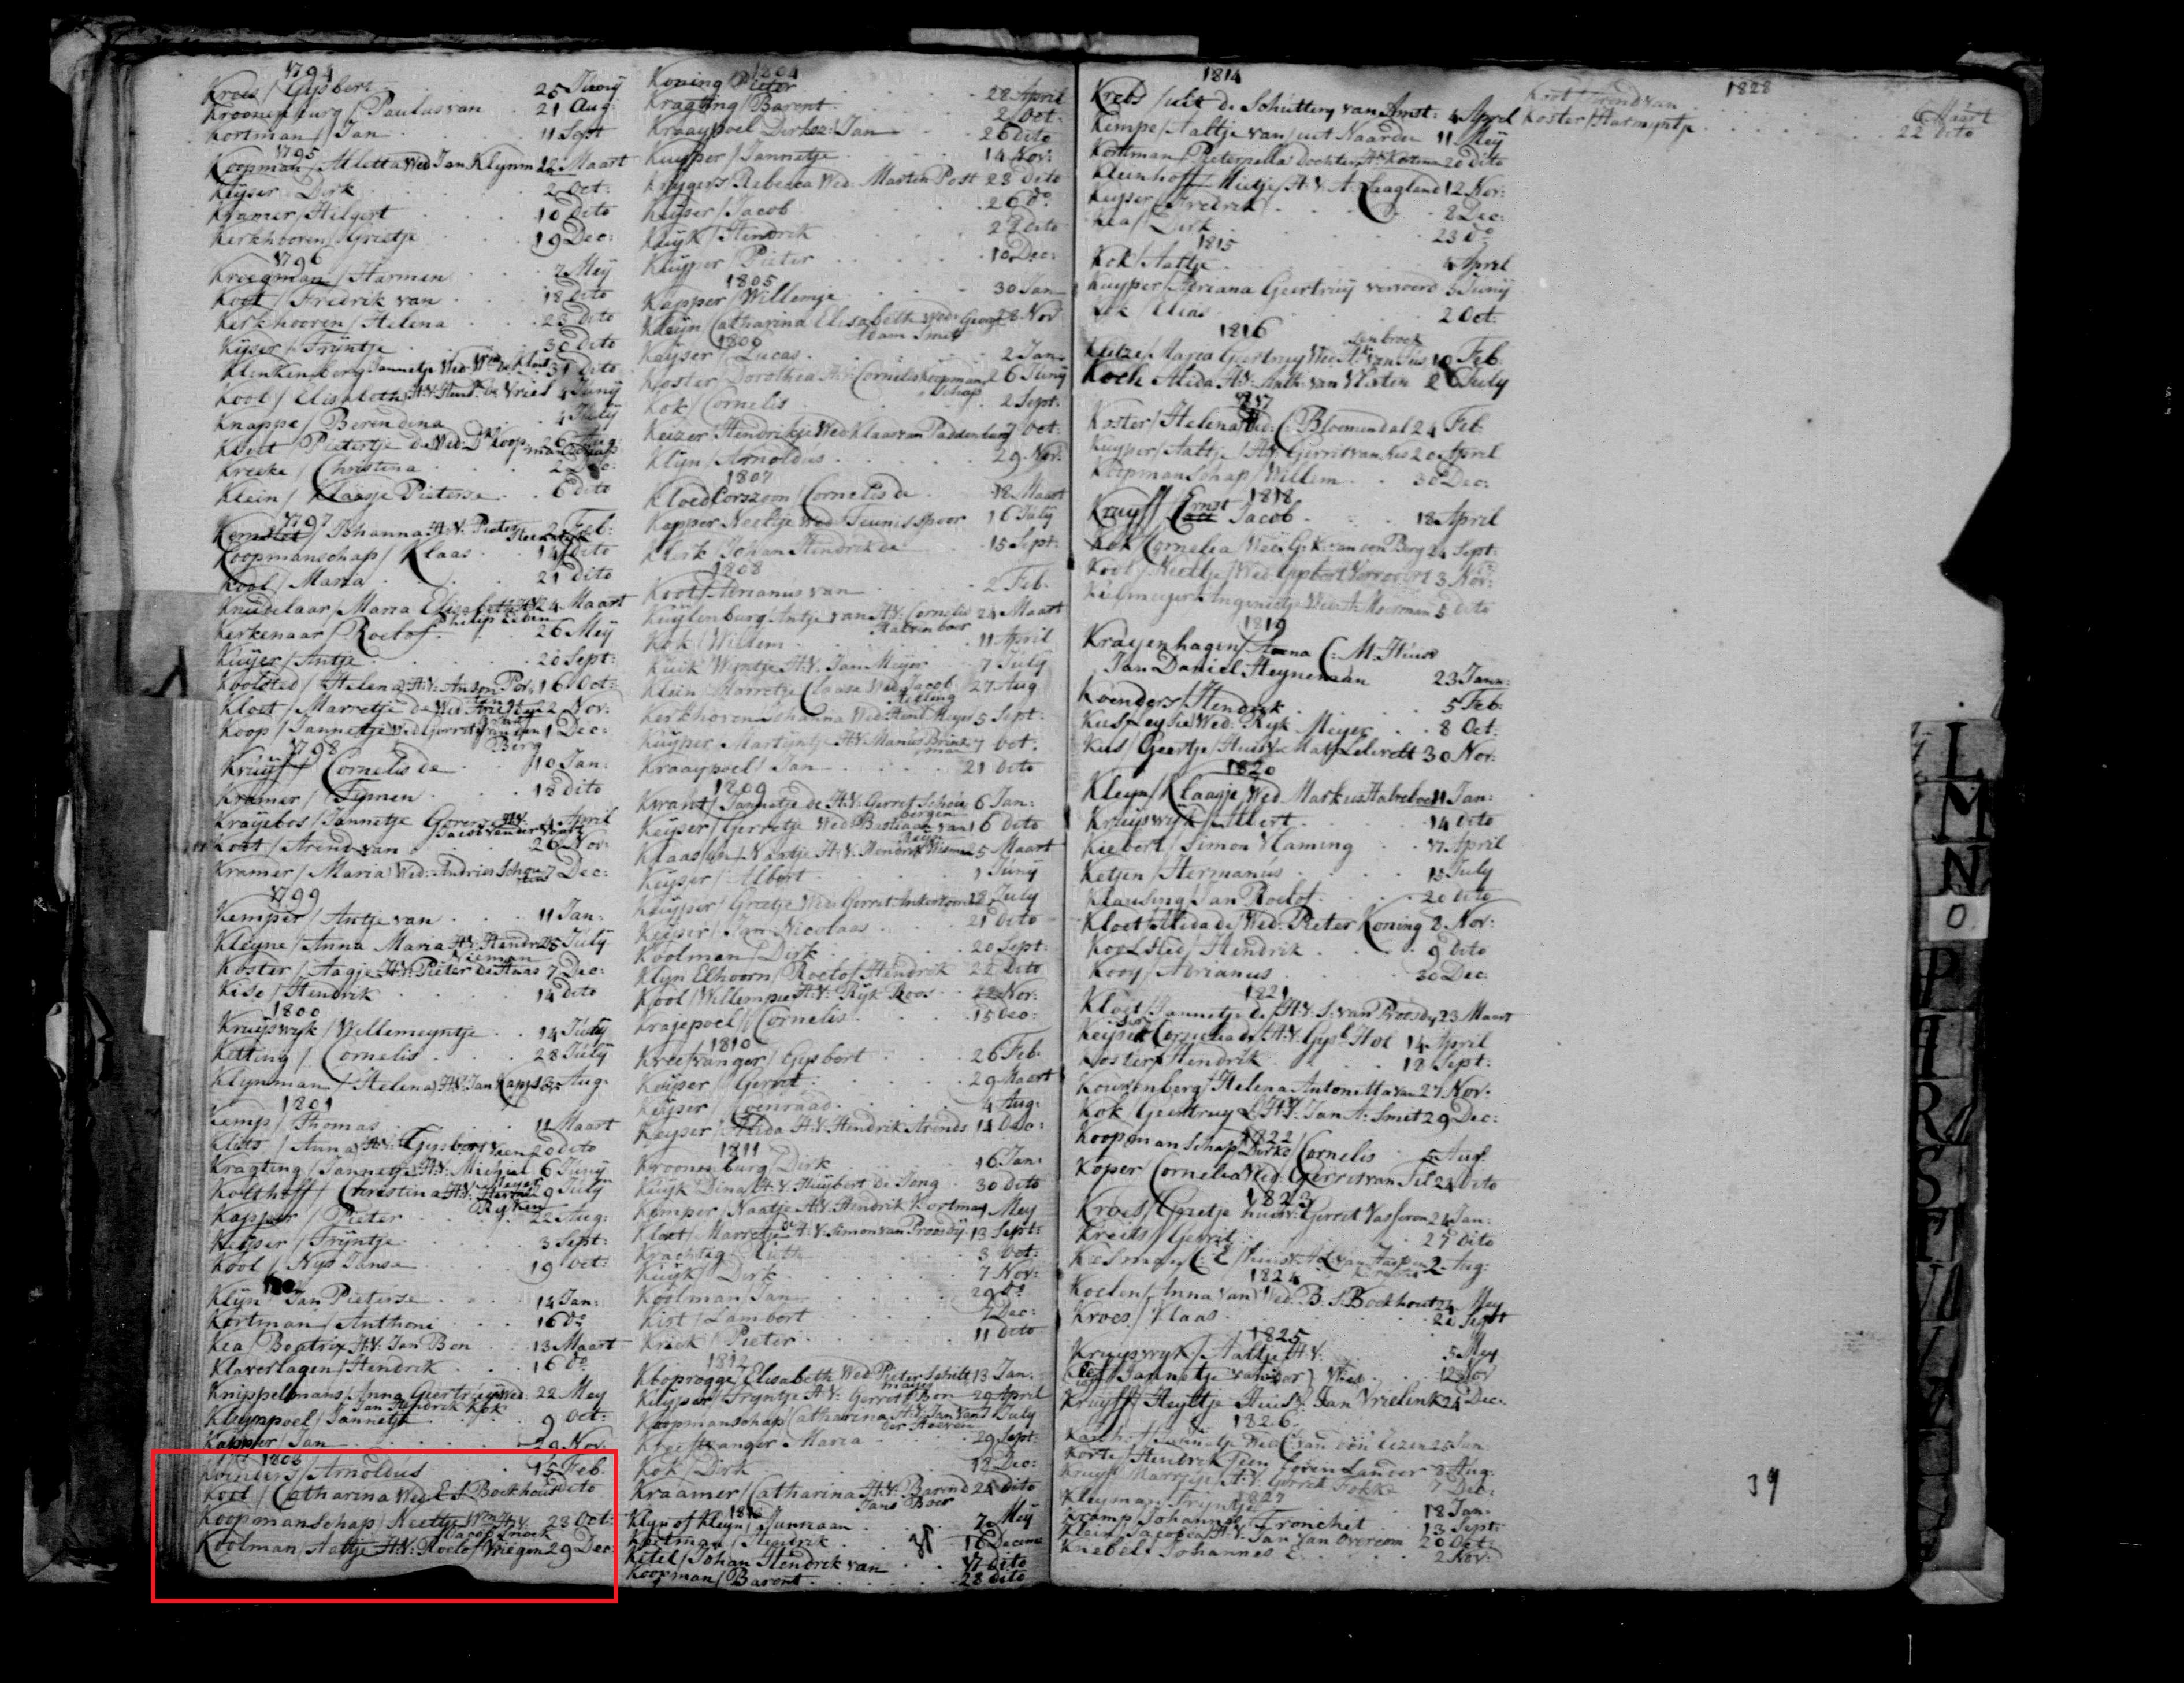 1794
Kroes / Gysbert 25 Juny
Kroonenburg / Paulus van 21 Aug:
Kortman / Jan 11 Sept
1795
Koopman / Alletta Wed Jan Klynman 12 Maart
Keyser Dirk 2 Oct:
Kramer / Hilgert 10 Dito
Kerkhooren / Grietje 19 Dec:
1796
Kroegman / Harmen 7 Mey
Koot / Fredrik van 18 Dito
Kerkhooren / Helena 23 Dito
Kyser / Tryntje 30 Dito
Klenkenberg Jannetje Wed Wm de Kloet 31 Dito
Kool / Elisabeth H:V: Hend: de Vries 4 Juny
Knappe / Berendina 4 July
Kloet / Pietertje de Wed: Dk Koopmanschap 26 Aug:
Kreeke / Christina 2 Dec:
Klein / Klaasje Pieterse 6 dito
1797
Johanna H:V: Pieter 2 Feb:
Koopmanschap / Klaas 14 Dito
Kool / Maria 21 Dito
Knudelaar / Maria Elisabeth H:V: 24 Maart
Philip Eeben
Kerkenaar / Roelof 26 Mey
Kuyer / Antje 20 Sept:
Koolsted / Helena H:V: Anton Pos 16 Oct:
Kloet / Marretje de Wed 2 Nov:
Koop / Jannetje Wed Gerrit van den 1 Dec:
Berg
1798
Kruyff Cornelis de 10 Jan:
Kramer / Tymen 18 dito
Krayebos / Jannetje H:V: 4 April
Jacob van der
Koot / Arend van 26 Nov:
Kramer / Maria Wed: Andries Schouten 7 Dec:
1799
Kemper / Antje van 11 Jan:
Kleyne / Anna Maria H:V: Hendrik 25 July
Nieman
Koster / Aagje H:V: Pieter de Haas 7 Dec:
Kiso / Hendrik 14 dito
1800
Kruyswyk / Willemeyntje 14 July
Ketting / Cornelis 28 July
Klynman / Helena H:V: Jan Kapper Aug:
1801
Kemp / Thomas 11 Maart
Anna H:V: Gysbert Veen 20 dito
Kragting / Jannetje H:V: Michiel 6 Juny
Meyer
Kolthoff / Christina H:V: Harmen 9 July
Ryken
Kapper / Pieter 22 Aug:
Keyser / Tryntje 3 Sept:
Kool / Nys Janse 19 Oct:
Klyn Jan Pieterse 14 Jan:
Kortman / Anthoni 16 Do
Kea / Beatrix H:V: Jan Bon 13 Maart
Klaverlagen / Hendrik 16 Do
Knippelmans / Anna Geertruy Wed: 22 Mey
Jan Hendrik Kok
Kleynpoel / Jannetje 9 Oct:
Kapper / Jan 29 Nov.
1803
Koenders / Arnoldus 15 Feb.
Kool / Catharina Wed E S. Bockhout Dito
Koopmanschap / Neeltje Wm H:V: 23 Oct:
Jacob Smook
Koolman / Aaltje H:V: Roelof Vriegen 29 Dec
1804
Koning / Pieter 28 April
Kragting / Barent 2 Oct:
Kraaypoel Dirksz: Jan 26 dito
Kuyper / Jannetje 14 Nov:
Krygers Rebecca Wed: Marten Post 23 Dito
Keyser / Jacob 26 Do
Kuyk / Hendrik 28 Dito
Kuyper / Pieter 10 Dec:
1805
Kapper / Willemje 30 Jan
Kleyn / Catharina Elisabeth Wed: George 28 Nov
Adam Smit
1806
Keyser / Lucas 2 Jan
Koster / Dorothea H:V: Cornelis Koopman 26 Juny
Schap
Kok / Cornelis 2 Sept:
Keizer Hendrikje Wed Klaas van Paddenburg 7 Oct:
Klyn / Arnoldus 29 Nov:
1807
Kloed Corszoon / Cornelis de 18 Maart
Kapper Neeltje Wed: Teunis Spoor 16 July
Klerk / Johan Hendrik de 15 Sept:
1808
Koot / Adrianus van 2 Feb.
Kuylenburg / Antje van H:V: Cornelis 24 Maart
Kok / Willem 11 April
Kuik Wyntje H:V: Jan Meyer 7 July
Klein / Marretje Claase Wed Jacob 27 Aug
Kerkhoven Johanna Wed Hend: Meyer 5 Sept:
Kuyper / Martyntje H:V: Manus Brink 7 Oct.
man
Kraaypoel / Jan 21 dito
1809
Kwant / Jannetje de H:V: Gerret Schou 6 Jan:
bergen
Keyser / Gerretje Wed: Bastiaan van 16 dito
Klaassen / Naatje H:V: Hendrik Wisman 25 Maart
Keyser / Albert 1 Juny
Kuyper / Grietje Wed: Gerret 12 July
Keyser / Jan Nicolaas 21 dito
Koolman / Dirk 20 Sept:
Klyn Elhoorn / Roelof Hendrik 22 Dito
Kool / Willempie H:V: Ryk Roos 22 Nov:
Krajepoel / Cornelis 15 Dec:
1810
Kreefvanger / Gysbert 26 Feb.
Keyser / Gerrit 29 Maart
Keyser / Coenraad 4 Aug:
Keyser / Alida H:V: Hendrik Arends 14 Dec:
1811
Kroonenburg Dirk 16 Jan:
Kuyk Dina H:V: Huybert de Jong 30 dito
Kemper / Naatje H:V: Hendrik Kortman Mey
Kloet / Marretje de H:V: Simon van Proosdy 13 Sept:
Krachteg Luth 3 Oct:
Kuyk / Dirk 7 Nov:
Koolman / Jan 29 Do
Kist / Lambert 7 Dec:
Kriek / Pieter 11 Dito
1812
Kboprogge / Elisabeth Wed Pieter Schilt 13 Jan:
Kuyper / Tryntje H:V: Gerret Bon 29 April
Koopmanschap / Catharina H:V: Jan van 7 July
der Hoeven
Kreefvanger Maria 29 Sept:
Kok / Dirk 12 Dec:
Kraamer / Catharina H:V: Barend 24 Dito
Jans Boer
1813
Klyn of Kleyn / Junnaan 7 Mey
Kortman / Hendrik 16 Decem:
Ketel / Johan Hendrik van 17 dito
Koopman / Barent 28 dito
1814
Krebs / uit de Schuttery van Amst: 4 April
Kempe / Aaltje van / uit Naarden 11 Mey
Kortman / Pieternella Dochter H: Kortman 20 dito
Kleinhoff Mietje / H:V: A: Laagland 12 Nov:
Keyser / Fredrik 8 Dec:
Kea / Dirk 23 Do
1815
Kok / Aaltje 4 April
Kuyper / Adriana Geertruy 5 Juny
Kok / Elias 2 Oct:
1816
Maria Geertruy Wed 10 Feb.
Koch Alida H:V: Anth: van Vlisten 26 July
1817
Koster / Helena Wed: C: Bloemendal 24 Feb:
Kuyper / Aaltje / H:V: Gerrit van Kes 20 April
Koopmanschap / Willem 30 Dec:
1818
Kruyff / Ernst Jacob 18 April
Kok / Cornelia / Wed: G. K: van den Berg 24 Sept:
Kool / Neeltje / Wed: Gysbert 3 Nov:
5 dito
1819
Krayenhagen / Anna C: M. Huis
Jan Daniel Heyneman 23 Jann:
Koenders / Hendrik 5 Feb:
Kus / Leysie Wed: Ryk Meyer 8 Oct:
Kus / Geertje / 30 Nov:
1820
Kleyn / Klaasje Wed Markus Halreboer 11 Jan:
Kruyswyk / Albert 14 dito
Kiebert / Simon Vlaming 17 April
Ketjen / Hermanus 15 July
Klausing / Jan Roelof 20 dito
Kloet / Alida de / Wed: Pieter Koning 8 Nov:
Koolsted / Hendrik 9 dito
Kooy / Adrianus 30 Dec:
1821
Kloet / Jannetje de / H:V: S: van Proosdy 23 Maart
Keyser Cornelia de H:V: Gysb Hol 14 April
Koster / Hendrik 18 Sept:
Kouwenberg / Helena Antonetta van 27 Nov:
Kok / Geertruy H:V: Jan A: Smit 29 Dec:
1822
Koopmanschap Dirksz / Cornelis Aug.
Koper Cornelia Wed: Gerrit van Til 24 dito
1823
Kroes / Grietje huisv: Gerrit Vasseron 24 Jan:
Kreits / Gerrit 27 Dito
2 Aug:
1824
Koelen / Anna van Wed: B: S: Bockhout 24 Mey
Kroes / Klaas 22 Sept
1825
Kruyswyk / Aaltje H:V: 5 Mey
Jannetje 12 Nov
Kruyff / Heyltje Huisv: Jan Vrielink 24 Dec:
1826
Jan:
Korte / Hendrik 8 Aug:
Kruyf Marretje H:V: Gerrit Fokke 7 Dec:
1827
Kleyman Tryntje 18 Jan:
Kramp Johannes Fronchet 13 Sept:
Klein / Jacoba H:V: Jan van Overeem 20 Oct:
Knebel Johannes E: 2 Nov:
1828
Koot Arend van 6 Maart
Koster / Harmyntje 22 dito
39
L
M
N
O
P
R
S